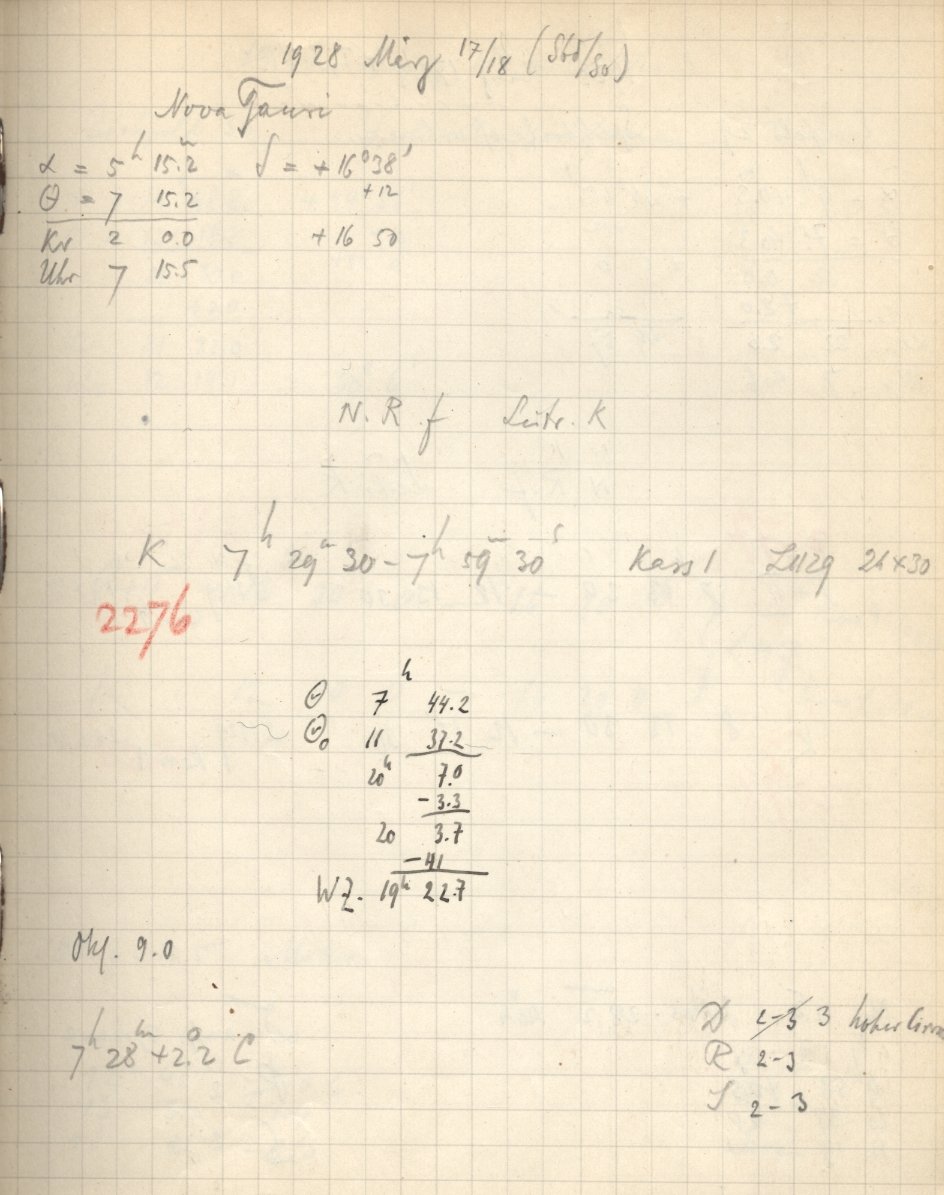 1928 März 17/18 (Sbd/So)
Nova Tauri
α = 5ʰ 15.2ᵐ δ = +16°38'
Θ = 7 15.2 +12
Kr 2 0.0 +16 50
Uhr 7 15.5
N. R f Leitr. K
K 7ʰ 29ᵐ 30 - 7ʰ 59ᵐ 30ˢ Kass 1 24x30
2276
Θ 7ʰ 44.2
Θ₀ 11 37.2
20ʰ 7.0
-3.3
20 3.7
-41
WZ. 19ʰ 22.7
Okl. 9.0
7ʰ 28ᵐ +2.2° C
D 2-3 3 hoher
R 2-3
S 2-3